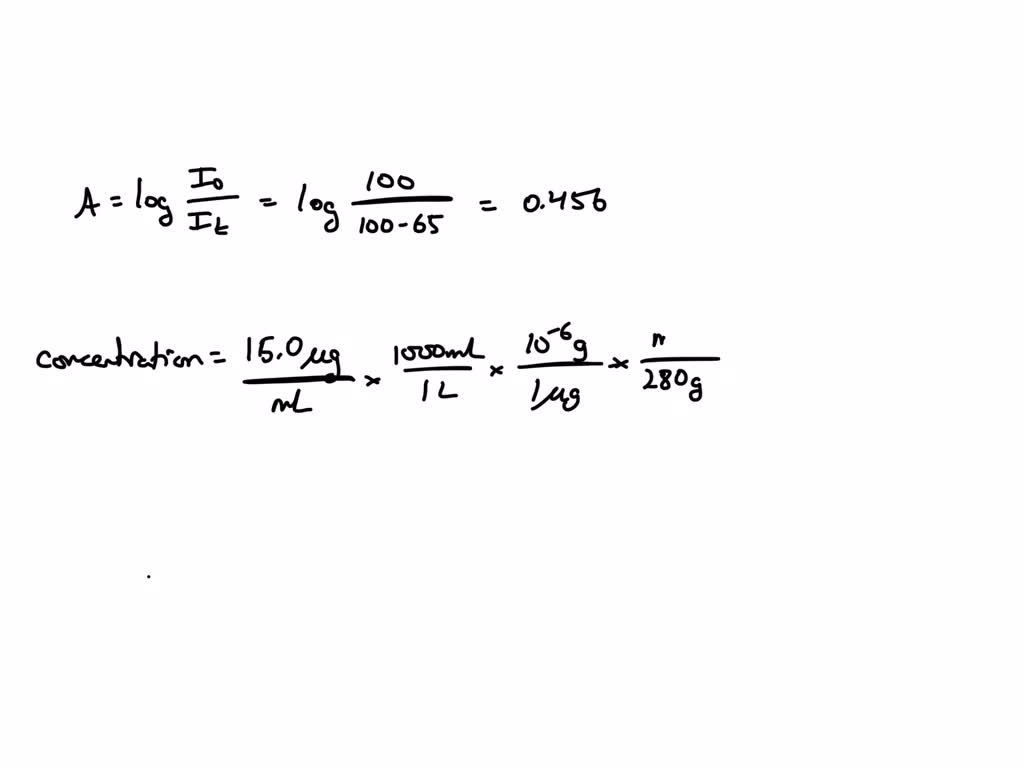 A = log I₀/Iₜ = log 100/100-65 = 0.456
concentration = 15.0 μg/mL × 1000mL/1L × 10⁻⁶g/1μg × /280g